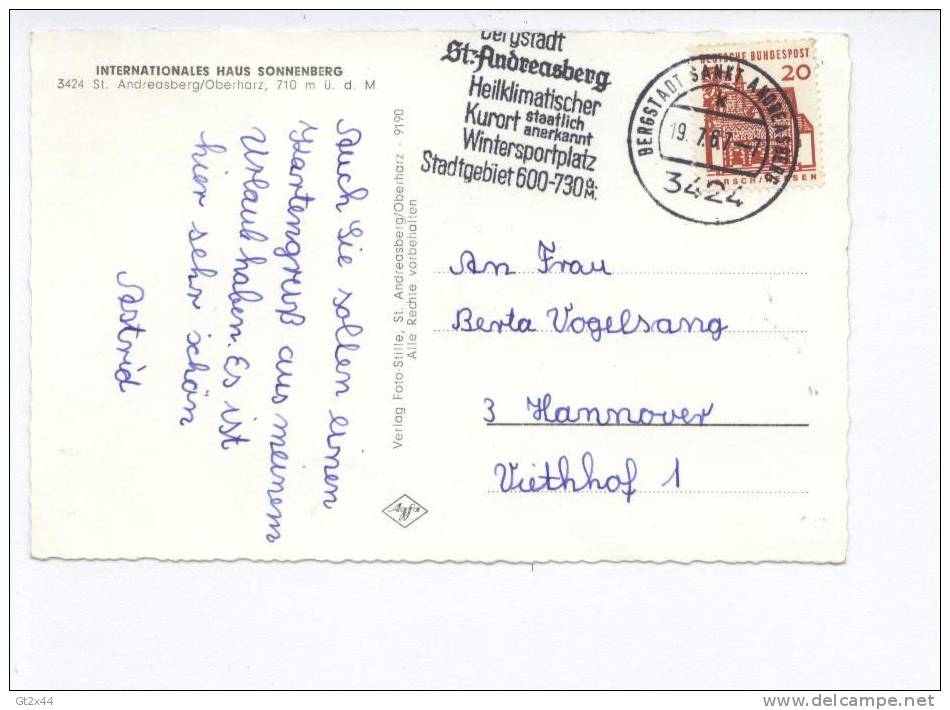 INTERNATIONALES HAUS SONNENBERG
3424 St. Andreasberg/Oberharz, 710 m ü. d. M.
Auch Sie sollen einen
Kartengruß aus meinem
Urlaub haben. Es ist
hier sehr schön
Astrid
Verlag Foto-Stille, St. Andreasberg/Oberharz - 9190
Alle Rechte vorbehalten
Agfa
Bergstadt
St. Andreasberg
Heilklimatischer
Kurort staatlich anerkannt
Wintersportplatz
Stadtgebiet 600-730 ü. M.
BERGSTADT SANKT ANDREASBERG
K
19. 7. 67 - 7
3424
DEUTSCHE BUNDESPOST
20
An Frau
Berta Vogelsang
3 Hannover
Viethhof 1
Gt2x44
delcampe.net